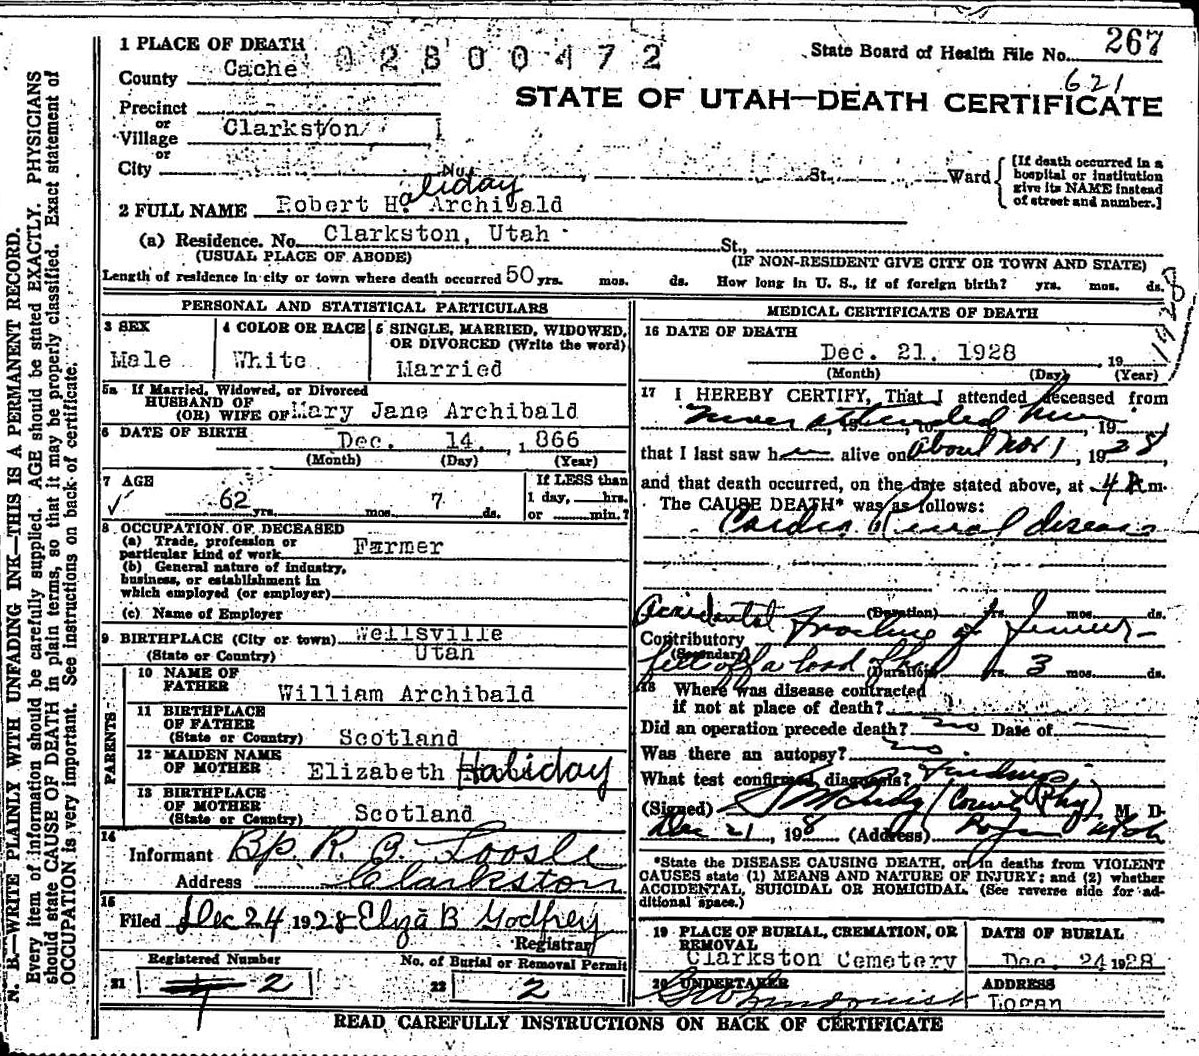 1 PLACE OF DEATH
02800472
State Board of Health File No. 267
County Cache
621
STATE OF UTAH—DEATH CERTIFICATE
Precinct
or
Village Clarkston
or
City No. St., Ward
[If death occurred in a
hospital or institution
give its NAME instead
of street and number.]
2 FULL NAME Robert Haliday Archibald
(a) Residence. No. Clarkston, Utah St.,
(USUAL PLACE OF ABODE) (IF NON-RESIDENT GIVE CITY OR TOWN AND STATE)
Length of residence in city or town where death occurred 50 yrs. mos. ds. How long in U. S., if of foreign birth? yrs. mos. ds.
PERSONAL AND STATISTICAL PARTICULARS
3 SEX
Male
4 COLOR OR RACE
White
5 SINGLE, MARRIED, WIDOWED,
OR DIVORCED (Write the word)
Married
5a If Married, Widowed, or Divorced
HUSBAND OF
(OR) WIFE OF Mary Jane Archibald
6 DATE OF BIRTH Dec. 14, 1866
(Month) (Day) (Year)
7 AGE
62 yrs. mos. 7 ds.
If LESS than
1 day, hrs.
or min.?
8 OCCUPATION OF DECEASED
(a) Trade, profession or
particular kind of work Farmer
(b) General nature of industry,
business, or establishment in
which employed (or employer)
(c) Name of Employer
9 BIRTHPLACE (City or town) Wellsville
(State or Country) Utah
PARENTS
10 NAME OF
FATHER William Archibald
11 BIRTHPLACE
OF FATHER
(State or Country) Scotland
12 MAIDEN NAME
OF MOTHER Elizabeth Haliday
13 BIRTHPLACE
OF MOTHER
(State or Country) Scotland
14
Informant Bp. R. O. Loosle
Address Clarkston
15
Filed Dec 24 1928 Eliza B Godfrey
Registrar
Registered Number No. of Burial or Removal Permit
21 2 22 2
MEDICAL CERTIFICATE OF DEATH
16 DATE OF DEATH
Dec. 21, 1928, 19 1928
(Month) (Day) (Year)
17 I HEREBY CERTIFY, That I attended deceased from
never attended him, 19
that I last saw h alive on about Nov 1, 1928,
and that death occurred, on the date stated above, at 4 A m.
The CAUSE DEATH* was as follows:
Cardio Renal disease
Accidental (Duration) yrs. mos. ds.
Contributory fracture of femur
(Secondary)
fell off a load of (Duration) yrs. 3 mos. ds.
18 Where was disease contracted
if not at place of death?
Did an operation precede death? no Date of
Was there an autopsy? no.
What test confirmed diagnosis? findings
(Signed) (County Phy) M. D.
Dec 21, 1928 (Address) Utah
*State the DISEASE CAUSING DEATH, or in deaths from VIOLENT
CAUSES state (1) MEANS AND NATURE OF INJURY; and (2) whether
ACCIDENTAL, SUICIDAL OR HOMICIDAL. (See reverse side for ad-
ditional space.)
19 PLACE OF BURIAL, CREMATION, OR
REMOVAL
Clarkston Cemetery
DATE OF BURIAL
Dec. 24 1928
20 UNDERTAKER
ADDRESS
Logan
READ CAREFULLY INSTRUCTIONS ON BACK OF CERTIFICATE
N. B.—WRITE PLAINLY WITH UNFADING INK—THIS IS A PERMANENT RECORD.
Every item of information should be carefully supplied. AGE should be stated EXACTLY. PHYSICIANS
should state CAUSE OF DEATH in plain terms, so that it may be properly classified. Exact statement of
OCCUPATION is very important. See instructions on back of certificate.